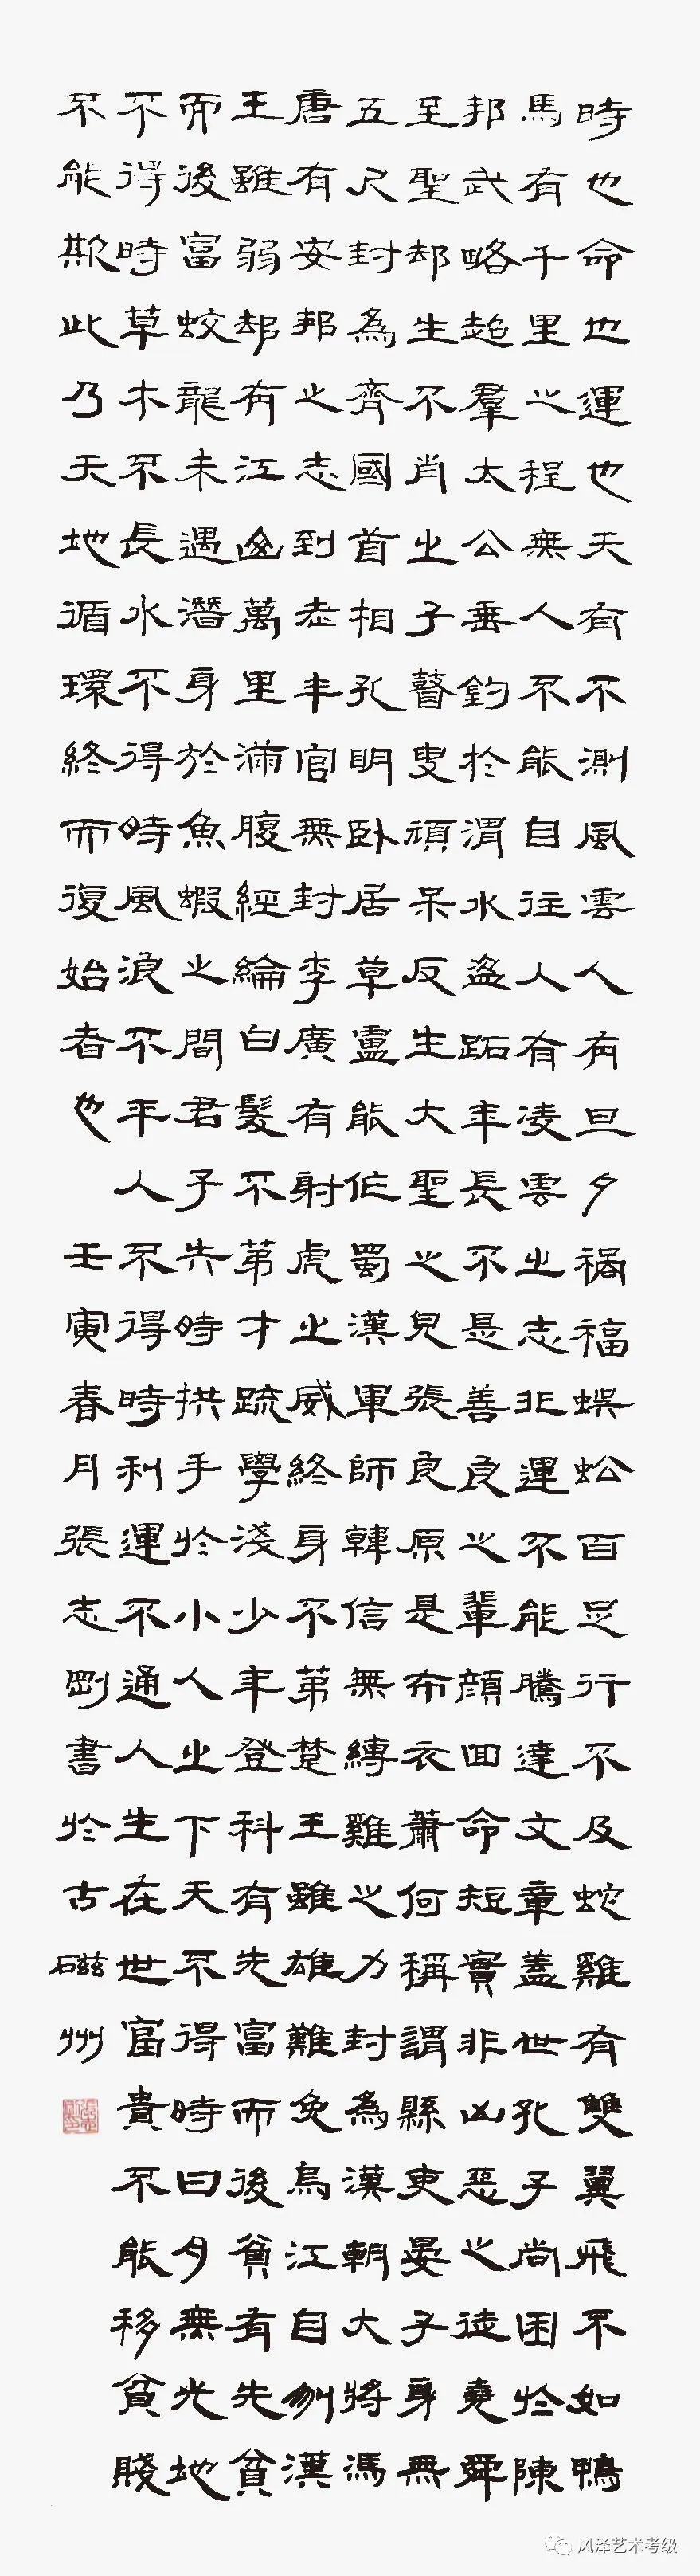 時也命也運也天有不測風雲人有旦夕禍福蜈蚣百足行不及蛇雞有雙翼飛不如鴨
馬有千里之程無人不能自往人有凌雲之志非運不能騰達文章蓋世孔子尚困於陳
邦武略超羣太公垂釣於渭水盗跖年長不是善良之輩顔回命短實非凶惡之徒堯舜
至聖却生不肖之子瞽叟頑呆反生大聖之兒張良原是布衣蕭何稱謂縣吏晏子身無
五尺封為齊國首相孔明卧居草廬能作蜀漢軍師韓信無縛雞之力封為漢朝大將馮
唐有安邦之志到老半官無封李廣有射虎之威終身不第楚王雖雄難免烏江自刎漢
王雖弱却有江山萬里滿腹經綸白髮不第才疏學淺少年登科有先富而後貧有先貧
而後富蛟龍未遇潛身於魚蝦之間君子失時拱手於小人之下天不得時日月無光地
不得時草木不長水不得時風浪不平人不得時利運不通人生在世富貴不能移貧賤
不能欺此乃天地循環終而復始者也 壬寅春月張志剛書於古磁州
风泽艺术考级